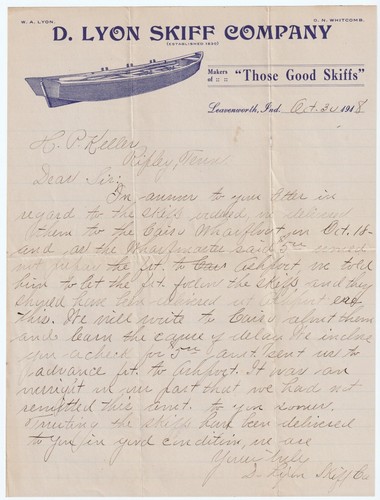 W. A. LYON.
D. N. WHITCOMB.
D. LYON SKIFF COMPANY
(ESTABLISHED
Makers of :: :: "Those Good Skiffs"
Leavenworth, Ind. Oct. 30 1918
H. P. Keller
Ripley, Tenn
Dear Sir:
In answer to your letter in
regard to the skiffs ordered, we delivered
them to the Cairo Wharfboat on Oct. 18
and as the Wharfmaster said we could
not prepay the frt. to Cairo Ashport, we told
him to let the frt. follow the skiffs and they
should have been delivered at Ashport ere
this. We will write to Cairo about them
and learn the cause of delay. We inclose
you a check for amt. sent us to
advance frt. to Ashport. It was an
oversight on our part that we had not
remitted this amt. to you sooner.
Trusting the skiffs have been delivered
to you in good condition, we are
Yours truly
D. Lyon Skiff Co